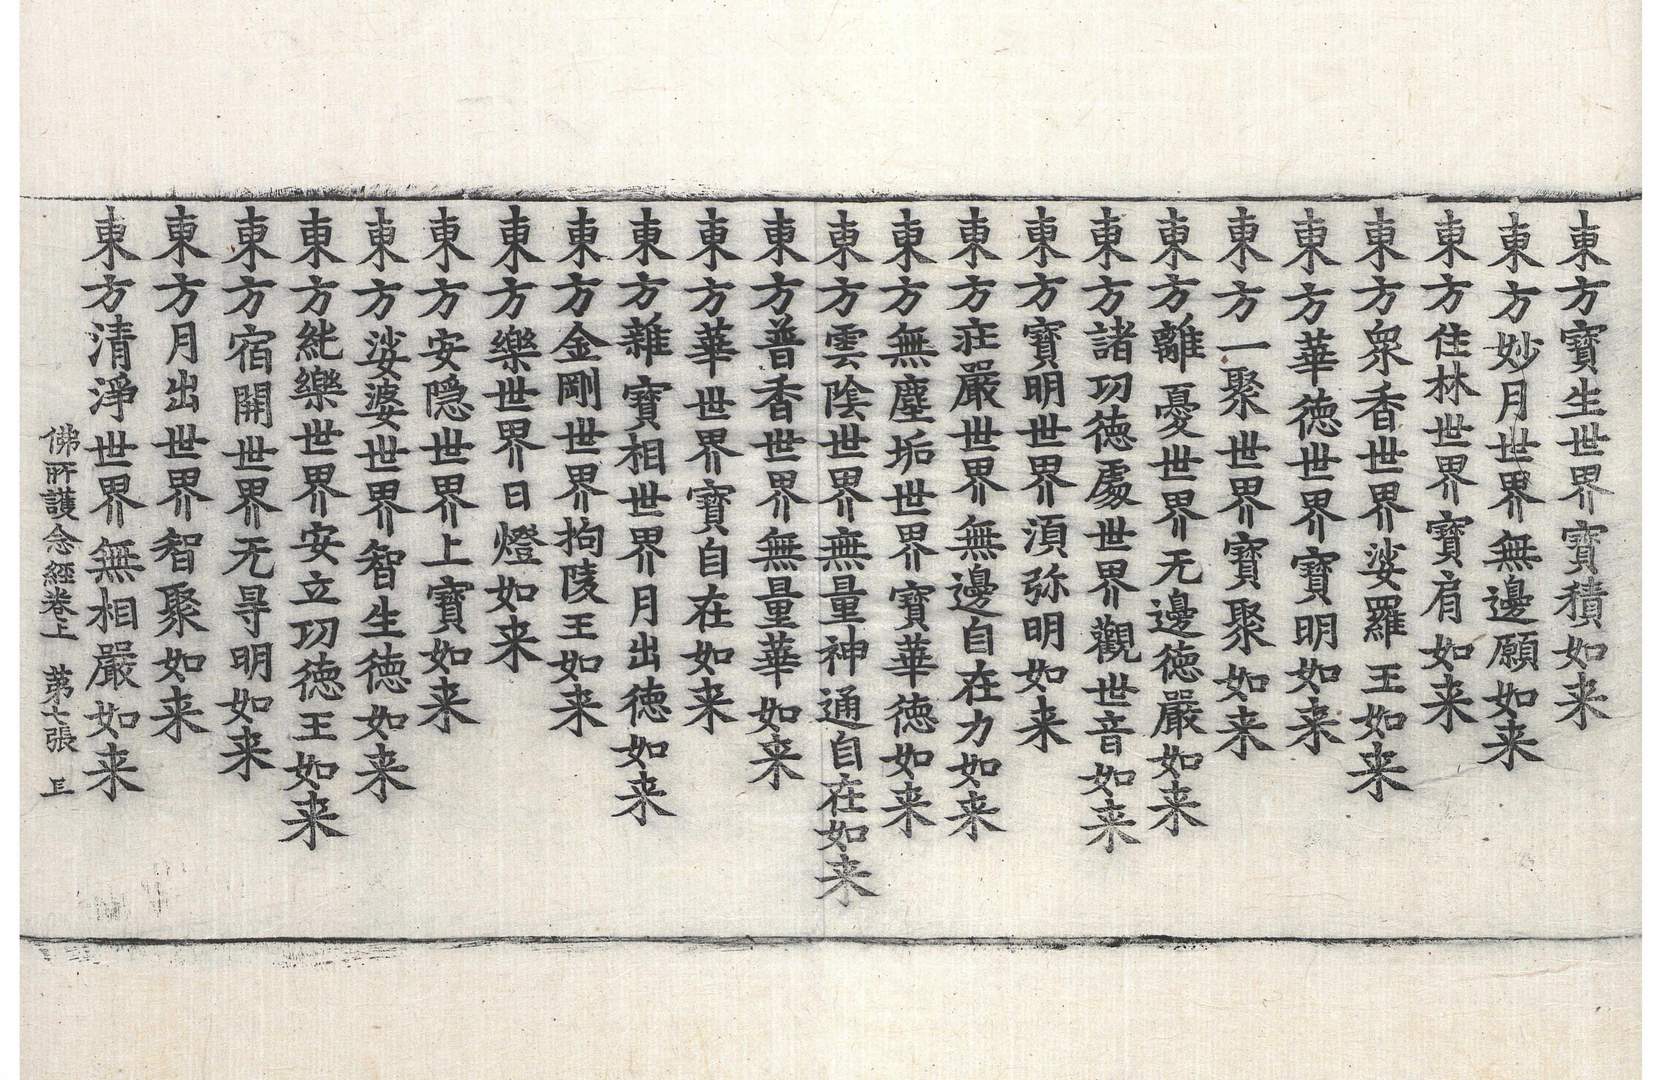 東方寶生世界寶積如来
東方妙月世界無邊願如来
東方住林世界寶肩如来
東方衆香世界娑羅王如来
東方華德世界寶明如来
東方一聚世界寶聚如来
東方離憂世界无邊德嚴如来
東方諸功德處世界觀世音如来
東方寶明世界湏弥明如来
東方莊嚴世界無邊自在力如来
東方無塵垢世界寶華德如来
東方雲陰世界無量神通自在如来
東方普香世界無量華如来
東方華世界寶自在如来
東方雜寶相世界月出德如来
東方金剛世界拘陵王如来
東方樂世界日燈如来
東方安隱世界上寶如来
東方娑婆世界智生德如来
東方純樂世界安立功德王如来
東方宿開世界无㝵明如来
東方月出世界智聚如来
東方清淨世界無相嚴如来
佛所護念經卷上　第七張